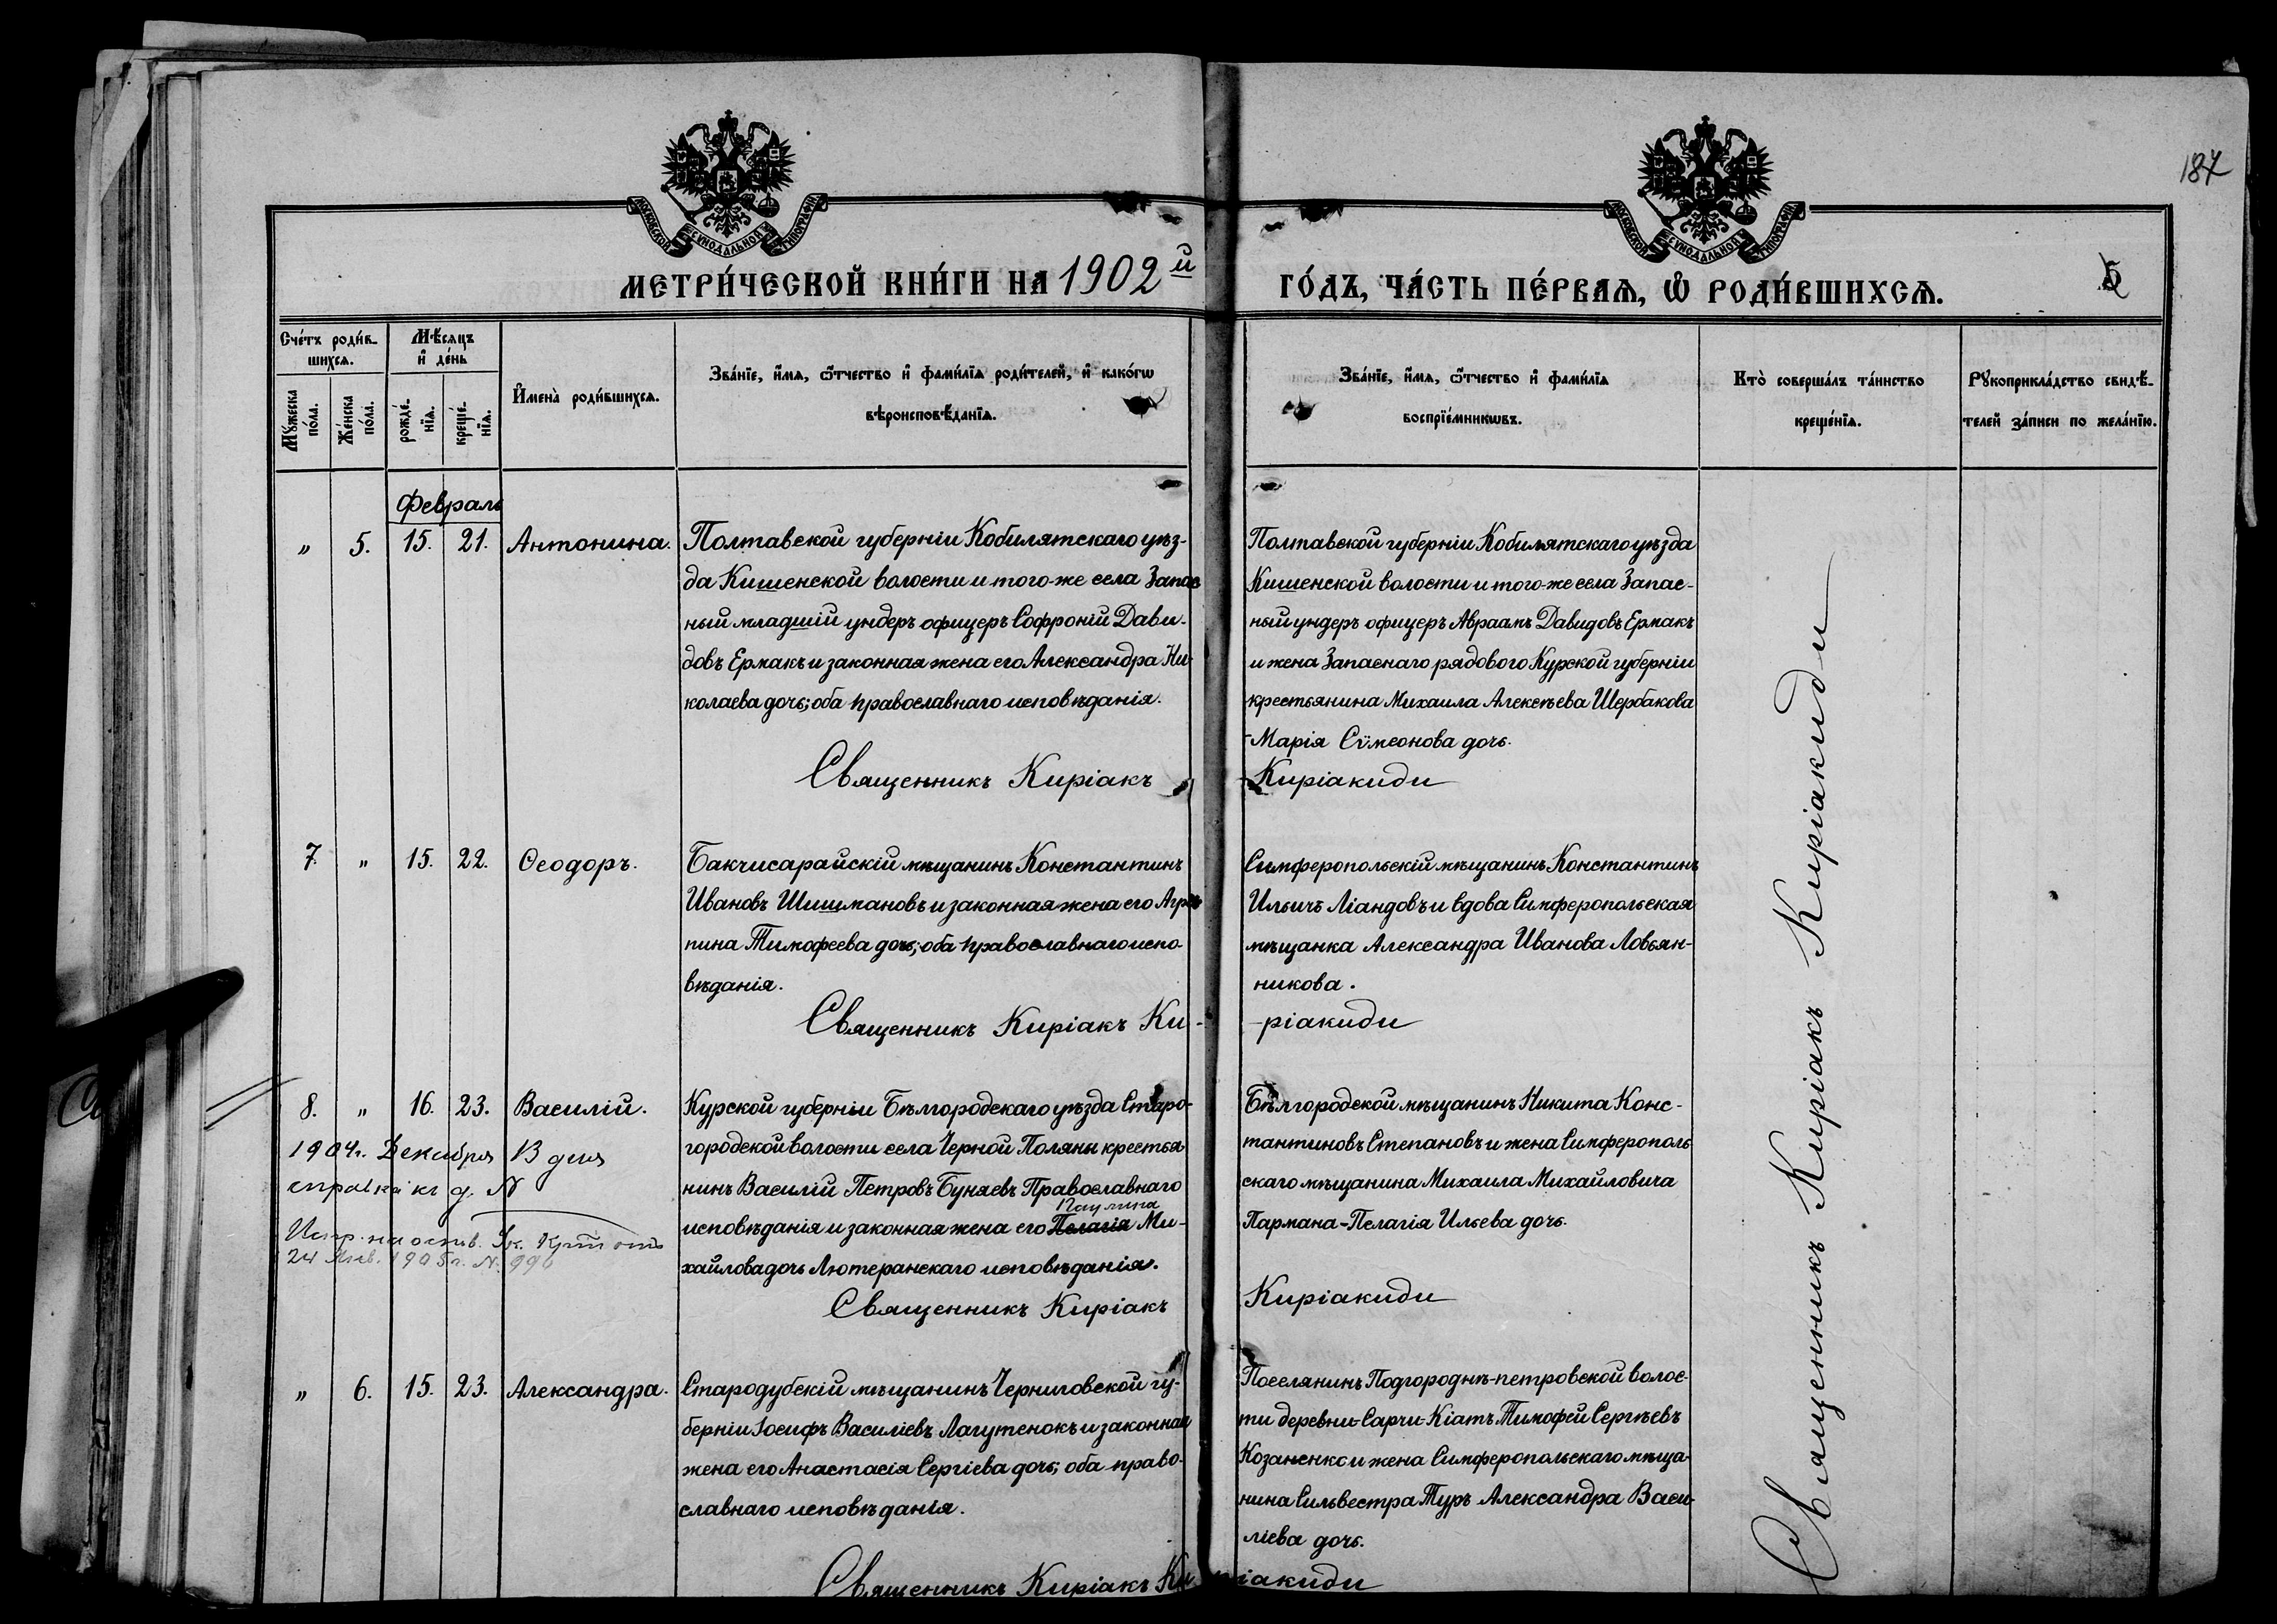 187
МОСКОВСКОЙ СѴНОДАЛЬНОЙ ТИПОГРАФІИ
МОСКОВСКОЙ СѴНОДАЛЬНОЙ ТИПОГРАФІИ
МЕТРИ́ЧЕСКОЙ КНИ́ГИ НА 1902й ГО́ДЪ, ЧА́СТЬ ПЕ́РВАѦ, Ѡ҆ РОДИ́ВШИХСѦ.
5
Сче́тъ роди́в-
шихсѧ.
Мꙋжеска по́ла.
Же́нска по́ла.
Мѣ́сѧцъ
и҆ де́нь
рожде́-
нїѧ.
креще́-
нїѧ.
И҆мена̀ роди́вшихсѧ.
Зва́нїе, и҆́мѧ, ѻ҆́тчество и҆ фами́лїѧ роди́телей, и҆ како́гѡ
вѣроисповѣ́данїѧ.
Зва́нїе, и҆́мѧ, ѻ҆́тчество и҆ фами́лїѧ
воспрїе́мникѡвъ.
Кто̀ соверша́лъ та́инство
креще́нїѧ.
Рꙋкоприкла́дство свидѣ́-
телей за́писи по жела́нїю.
Февраль
" 5. 15. 21. Антонина.
Полтавской губерніи Кобилятскаго уѣз-
да Кишенской волости и того-же села Запас
ный младшій ундеръ офицеръ Софроній Дави-
довъ Ермакъ и законная жена его Александра Ни-
колаева дочь; оба православнаго исповѣданія.
Священникъ Киріакъ
Полтавской губерніи Кобилятскаго уѣзда
Кишенской волости и того-же села Запас-
ный ундеръ офицеръ Авраамъ Давидовъ Ермакъ
и жена Запаснаго рядового Курской губерніи
крестьянина Михаила Алексѣева Щербакова
-Марія Сѵмеонова дочь.
Киріакиди
7. " 15. 22. Ѳеодоръ.
Бакчисарайскій мѣщанинъ Константинъ
Ивановъ Шишмановъ и законная жена его Агрип
пина Тимофеева дочь; оба православнаго испо-
вѣданія.
Священникъ Киріакъ Ки-
Симферопольскій мѣщанинъ Константинъ
Ильичъ Ліандовъ и вдова Симферопольская
мѣщанка Александра Иванова Ловьян-
никова.
-ріакиди
8. " 16. 23. Василій.
1904г. Декабря 13 дня
справка къ д. №
24 Янв. 1905г. № 996
Курской губерніи Бѣлгородскаго уѣзда Старо-
городской волости села Черной Поляны крестья
нинъ Василій Петровъ Буняевъ Православнаго
Паулина
исповѣданія и законная жена его Пелагія Ми-
хайлова дочь Лютеранскаго исповѣданія.
Священникъ Киріакъ
Бѣлгородской мѣщанинъ Никита Конс-
тантиновъ Степановъ и жена Симферополь
скаго мѣщанина Михаила Михайловича
Пармана-Пелагія Ильева дочь.
Киріакиди
" 6. 15. 23. Александра.
Стародубскій мѣщанинъ Черниговской гу-
берніи Іосифъ Василіевъ Лагутенокъ и законная
жена его Анастасія Сергіева дочь; оба право-
славнаго исповѣданія.
Священникъ Киріакъ Ки
Поселянинъ Подгороднѣ-петровской волос-
ти деревни-Сарчи-Кіатъ Тимофей Сергѣевъ
Козаненко и жена Симферопольскаго мѣща-
нина Сильвестра Туръ Александра Васи-
ліева дочь.
ріакиди
Священникъ Киріакъ Киріакиди